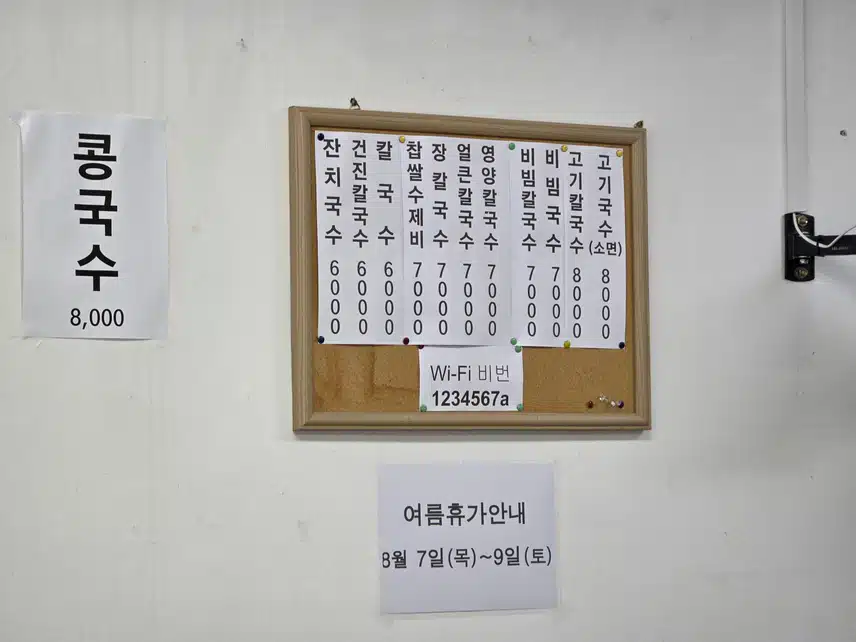 콩국수
8,000
잔치국수 6000
건진칼국수 6000
칼국수 6000
찹쌀수제비 7000
장칼국수 7000
얼큰칼국수 7000
영양칼국수 7000
비빔칼국수 7000
비빔국수 7000
고기칼국수 8000
고기국수(소면) 8000
Wi-Fi 비번
1234567a
여름휴가안내
8월 7일(목)~9일(토)